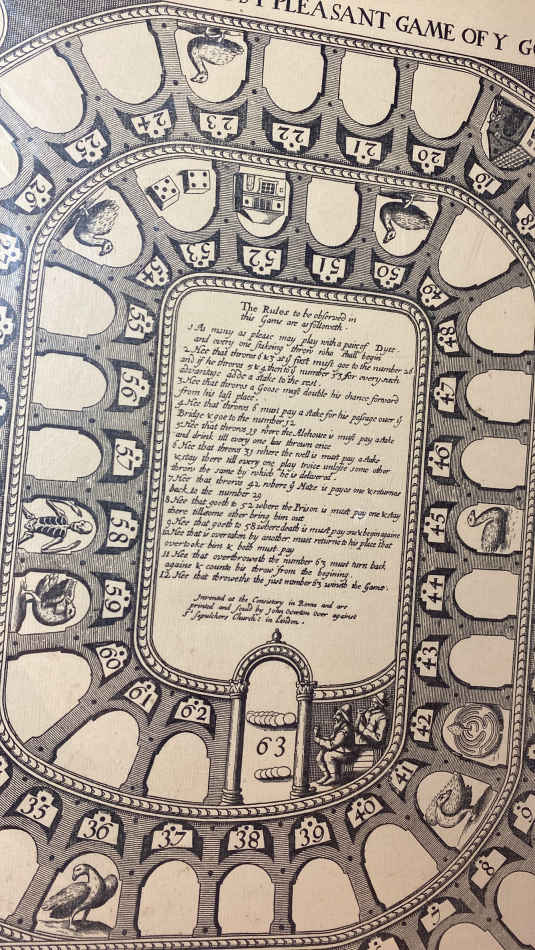 PLEASANT GAME OF Y GO
The Rules to be observed in
this Game are as followeth.
1. As many as please may play with a paire of Dyce.
and every one stakeing throw who shall begin
2. Hee that throws 6 & 3 at y first must goe to the number 26
and if he throws 5 & 4 then to y number 53 for every such
advantage adds a stake to the rest.
3. Hee that throws a Goose must double his chance forward
from his last place.
4. Hee that throws 6 must pay a stake for his passage over y
Bridge & goe to the number 12
5. Hee that throws 19 where the Alehouse is must pay a stake
and drink till every one has thrown once
6. Hee that throws 31 where the well is must pay a stake
& stay there till every one play twice unless some other
throws the same by which he is delivered.
7. Hee that throws 42 where y Maze is payes one & returnes
back to the number 29
8. Hee that goeth to 52 where the Prison is must pay one & stay
there till some other bring him out
9. Hee that goeth to 58 where death is must pay one & begin againe
10. Hee that is overtaken by another must returne to his place that
overtooke him & both must pay
11. Hee that overthroweth the number 63 must turn back
againe & counte his throw from the beginning.
12. Hee that throweth the just number 63 wineth the Game.
Invented at the Consistory in Rome and are
printed and sould by John Overton over against
S Sepulchers Church in London.
26
25
24
23
22
21
20
19
54
53
52
51
50
49
55
48
56
47
57
46
58
45
59
44
60
43
61
62
42
63
41
35
36
37
38
39
40